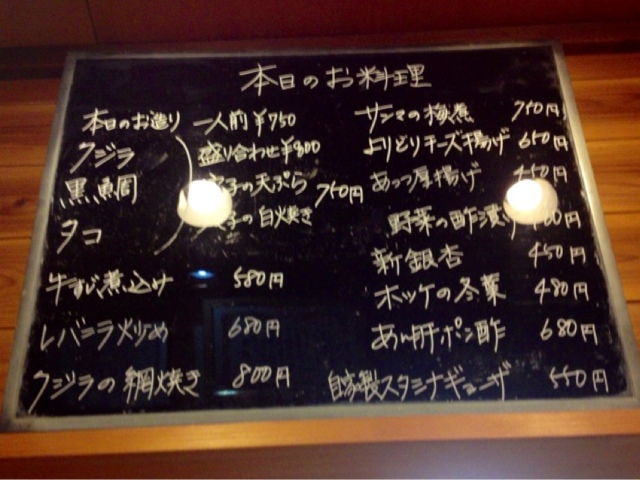 本日のお料理
本日のお造り 一人前¥750
クジラ 盛り合わせ¥800
黒鯛 子の天ぷら 750円
タコ 子の白焼き
牛すじ煮込み 580円
レバニラ炒め 680円
クジラの網焼き 800円
サンマの梅煮 750円
よりどりチーズ揚げ 650円
あつつ厚揚げ 450円
野菜の酢漬け 00円
新銀杏 450円
ホッケの 480円
あん肝ポン酢 680円
自家製スタミナギョーザ 550円